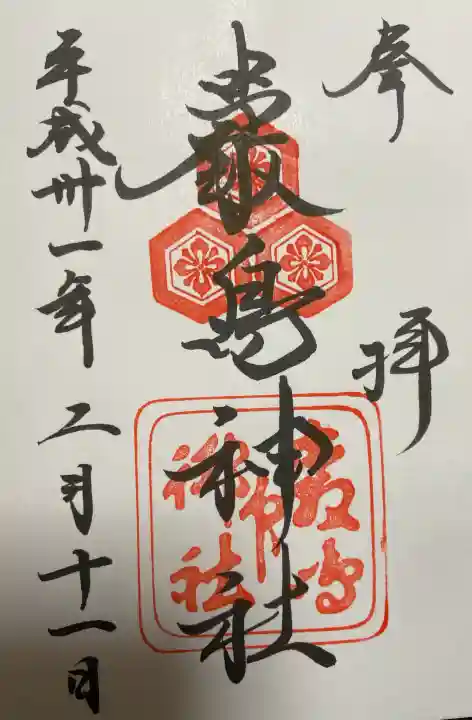 奉拝
嚴島神社
平成卅一年二月十一日